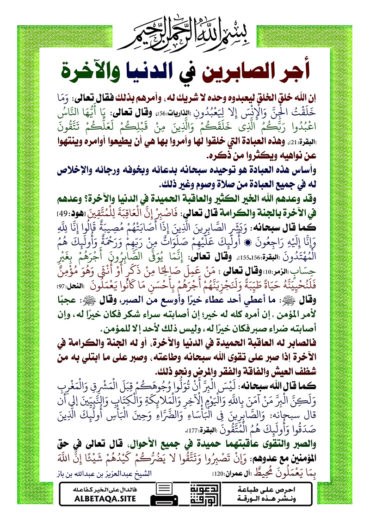 بسم الله الرحمن الرحيم
أجر الصابرين في الدنيا والآخرة
إن الله خلق الخلق ليعبدوه وحده لا شريك له، وأمرهم بذلك فقال تعالى: وَمَا
خَلَقْتُ الْجِنَّ وَالْإِنْسَ إِلَّا لِيَعْبُدُونِ [الذاريات:56]، وقال تعالى: يَا أَيُّهَا النَّاسُ
اعْبُدُوا رَبَّكُمُ الَّذِي خَلَقَكُمْ وَالَّذِينَ مِنْ قَبْلِكُمْ لَعَلَّكُمْ تَتَّقُونَ
[البقرة:21]، وهذه العبادة التي خلقوا لها وأمروا بها هي أن يطيعوا أوامره وينتهوا
عن نواهيه ويكثروا من ذكره.
وأساس هذه العبادة هو توحيده سبحانه بدعائه وبخوفه ورجائه والإخلاص
له في جميع العبادة من صلاة وصوم وغير ذلك.
وقد وعدهم الله الخير الكثير والعاقبة الحميدة في الدنيا والآخرة؟ وعدهم
في الآخرة بالجنة والكرامة قال تعالى: فَاصْبِرْ إِنَّ الْعَاقِبَةَ لِلْمُتَّقِينَ [هود:49]
كما قال سبحانه: وَبَشِّرِ الصَّابِرِينَ الَّذِينَ إِذَا أَصَابَتْهُمْ مُصِيبَةٌ قَالُوا إِنَّا لِلَّهِ
وَإِنَّا إِلَيْهِ رَاجِعُونَ ۞ أُولَئِكَ عَلَيْهِمْ صَلَوَاتٌ مِنْ رَبِّهِمْ وَرَحْمَةٌ وَأُولَئِكَ هُمُ
الْمُهْتَدُونَ [البقرة:155،156]، وقال تعالى: إِنَّمَا يُوَفَّى الصَّابِرُونَ أَجْرَهُمْ بِغَيْرِ
حِسَابٍ [الزمر:10] وقال تعالى: مَنْ عَمِلَ صَالِحًا مِنْ ذَكَرٍ أَوْ أُنْثَى وَهُوَ مُؤْمِنٌ
فَلَنُحْيِيَنَّهُ حَيَاةً طَيِّبَةً وَلَنَجْزِيَنَّهُمْ أَجْرَهُمْ بِأَحْسَنِ مَا كَانُوا يَعْمَلُونَ [النحل:97]
وقال ﷺ: ما أعطي أحد عطاء خيرًا وأوسع من الصبر، وقال ﷺ: عجبًا
لأمر المؤمن، إن أمره كله له خير؛ إن أصابته سراء شكر فكان خيرًا له، وإن
أصابته ضراء صبر فكان خيرًا له، وليس ذلك لأحد إلا للمؤمن.
فالصابر له العاقبة الحميدة في الدنيا والآخرة، أو له الجنة والكرامة في
الآخرة إذا صبر على تقوى الله سبحانه وطاعته، وصبر على ما ابتلي به من
شظف العيش والفاقة والفقر والمرض ونحو ذلك.
كما قال الله سبحانه: لَيْسَ الْبِرَّ أَنْ تُوَلُّوا وُجُوهَكُمْ قِبَلَ الْمَشْرِقِ وَالْمَغْرِبِ
وَلَكِنَّ الْبِرَّ مَنْ آمَنَ بِاللَّهِ وَالْيَوْمِ الْآخِرِ وَالْمَلَائِكَةِ وَالْكِتَابِ وَالنَّبِيِّينَ إلى أن
قال سبحانه: وَالصَّابِرِينَ فِي الْبَأْسَاءِ وَالضَّرَّاءِ وَحِينَ الْبَأْسِ أُولَئِكَ الَّذِينَ
صَدَقُوا وَأُولَئِكَ هُمُ الْمُتَّقُونَ [البقرة:177].
والصبر والتقوى عاقبتهما حميدة في جميع الأحوال. قال تعالى في حق
المؤمنين مع عدوهم: وَإِنْ تَصْبِرُوا وَتَتَّقُوا لَا يَضُرُّكُمْ كَيْدُهُمْ شَيْئًا إِنَّ اللَّهَ
بِمَا يَعْمَلُونَ مُحِيطٌ [آل عمران:120]
الشيخ عبدالعزيز بن عبدالله بن باز
احرص على طباعة
ونشر هذه الورقة
فالدال على الخير كفاعله
ALBETAQA.SITE